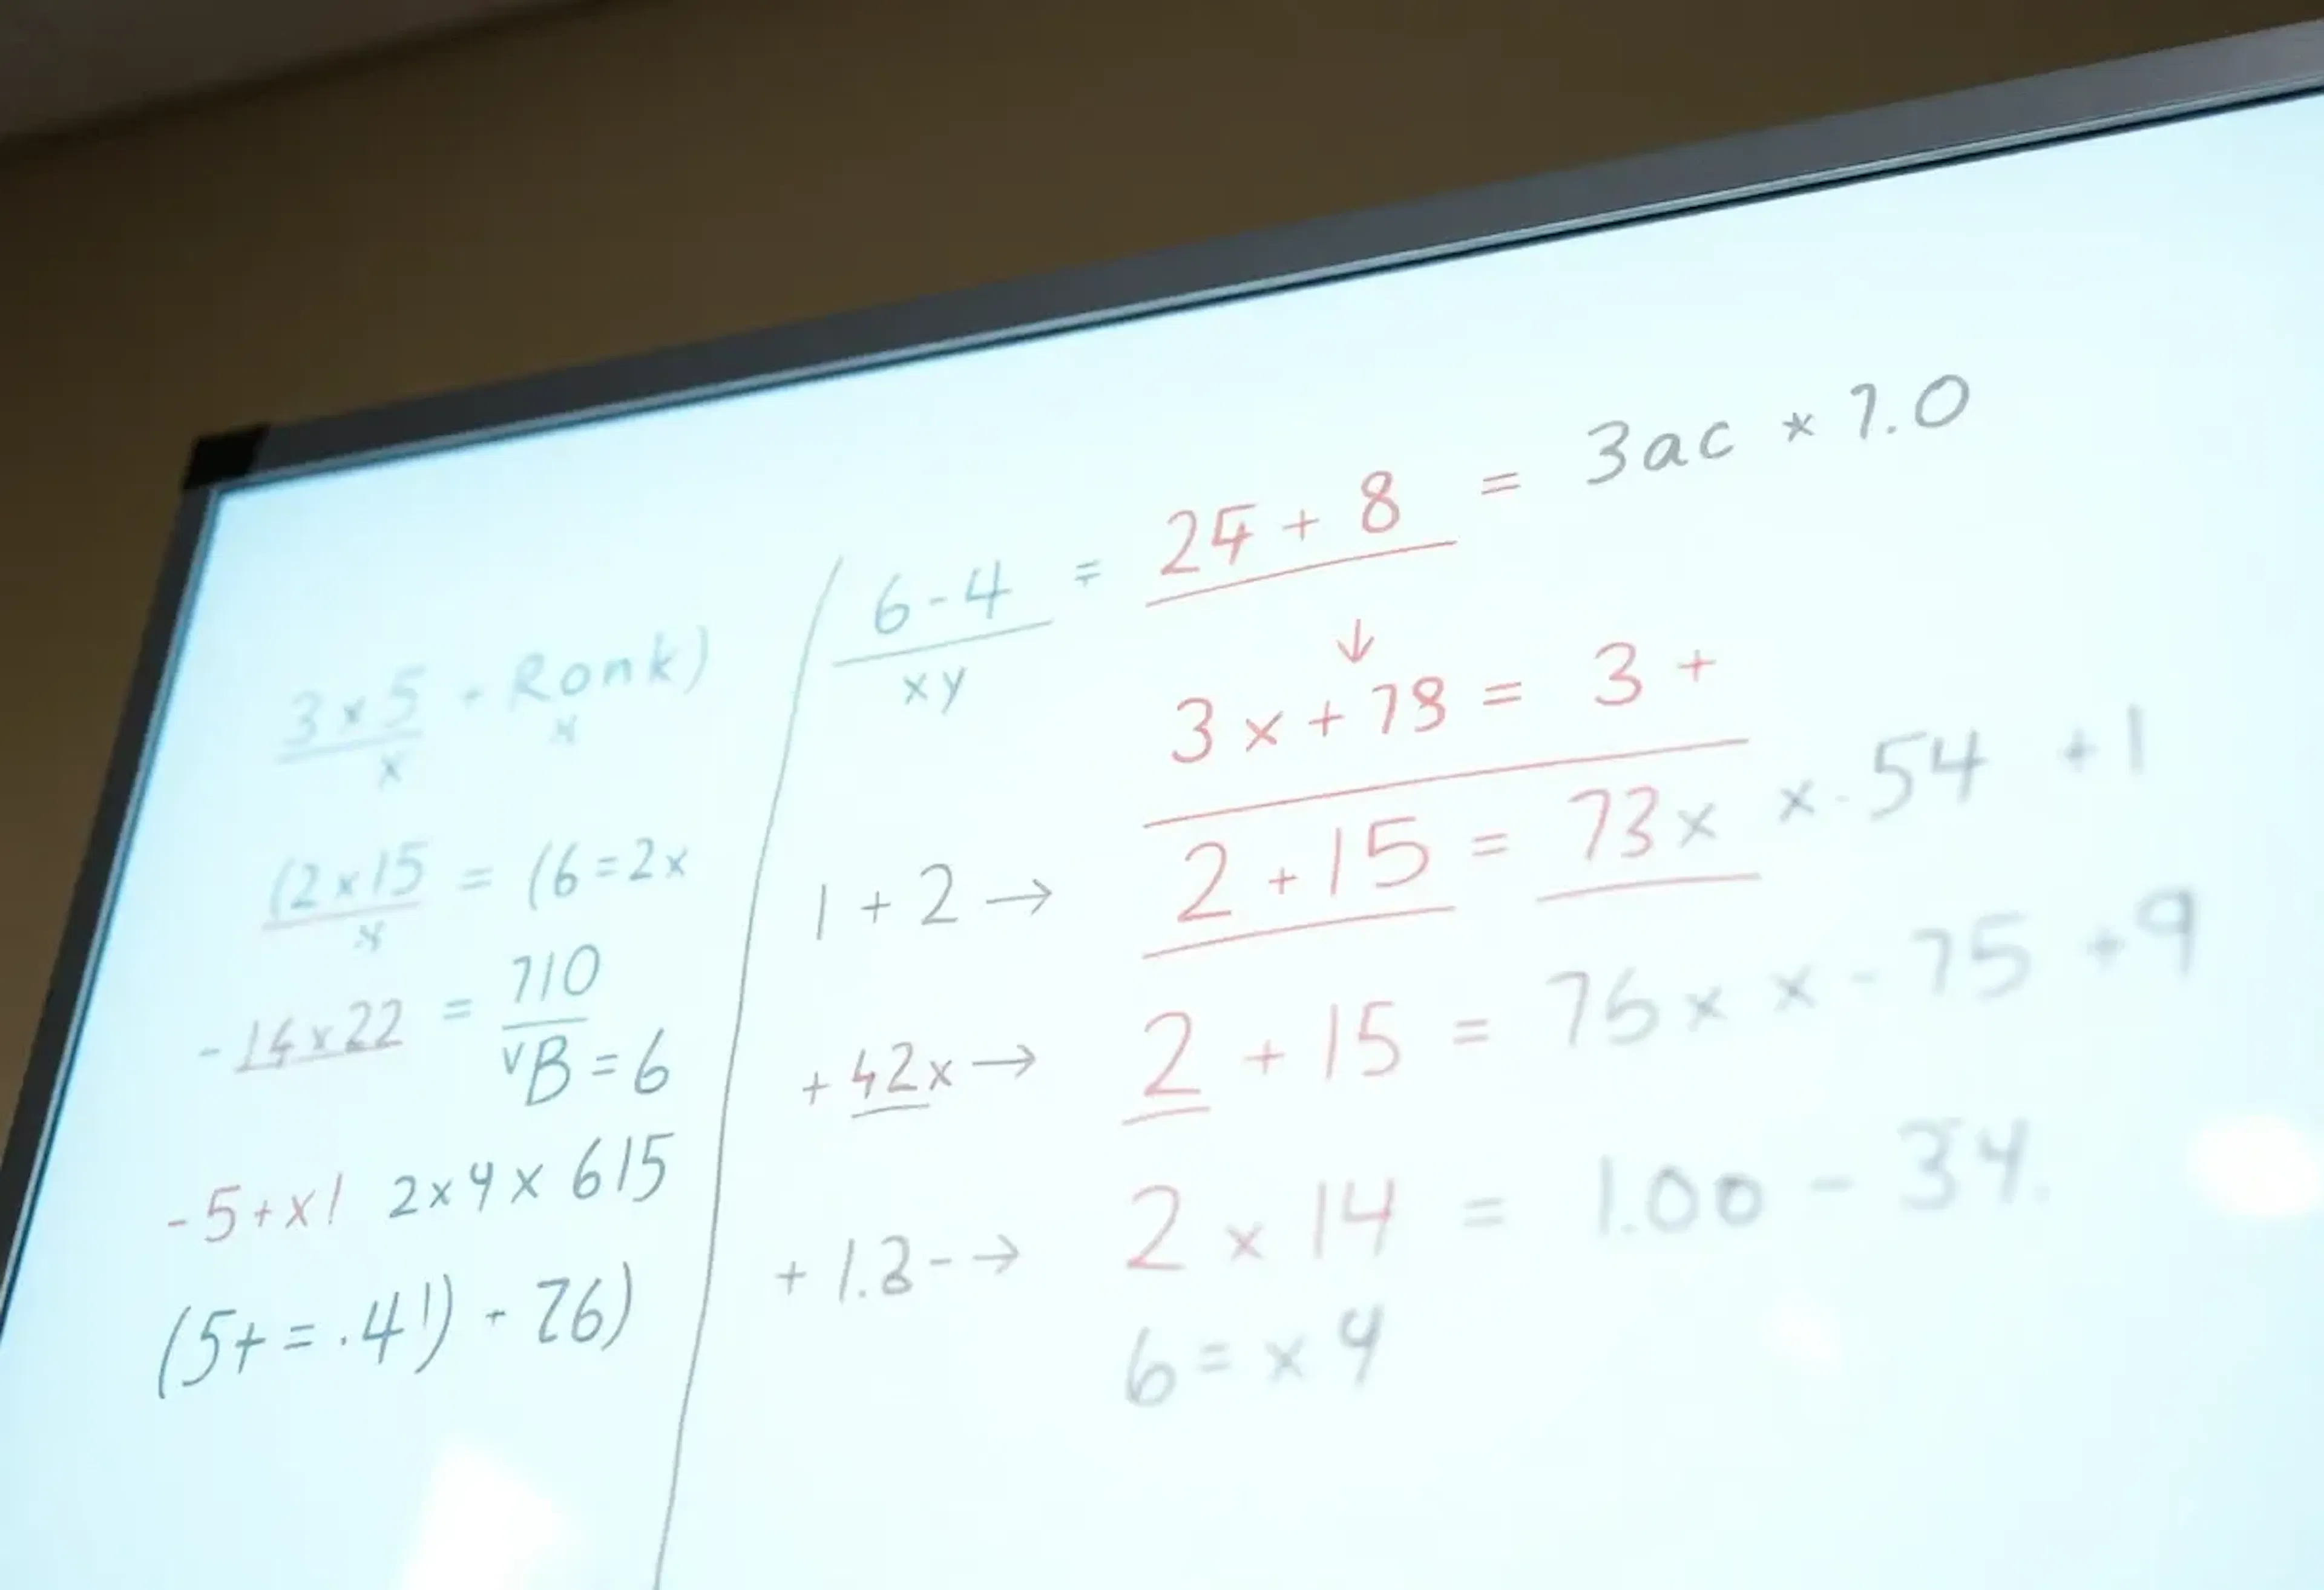 3 x 5 - Ronk)
x x
(2 x 15 = (6 = 2 x
x
- 14 x 22 = 710
vB = 6
- 5 + x! 2 x 4 x 615
(5 + = . 4!) - 76)
6 - 4 = 25 + 8 = 3ac * 7.0
xy
↓
3 x + 78 = 3 +
1 + 2 → 2 + 15 = 73 x x - 54 + 1
+ 42x → 2 + 15 = 76 x x - 75 + 9
+ 1.3 - → 2 x 14 = 1.00 - 34.
6 = x 4